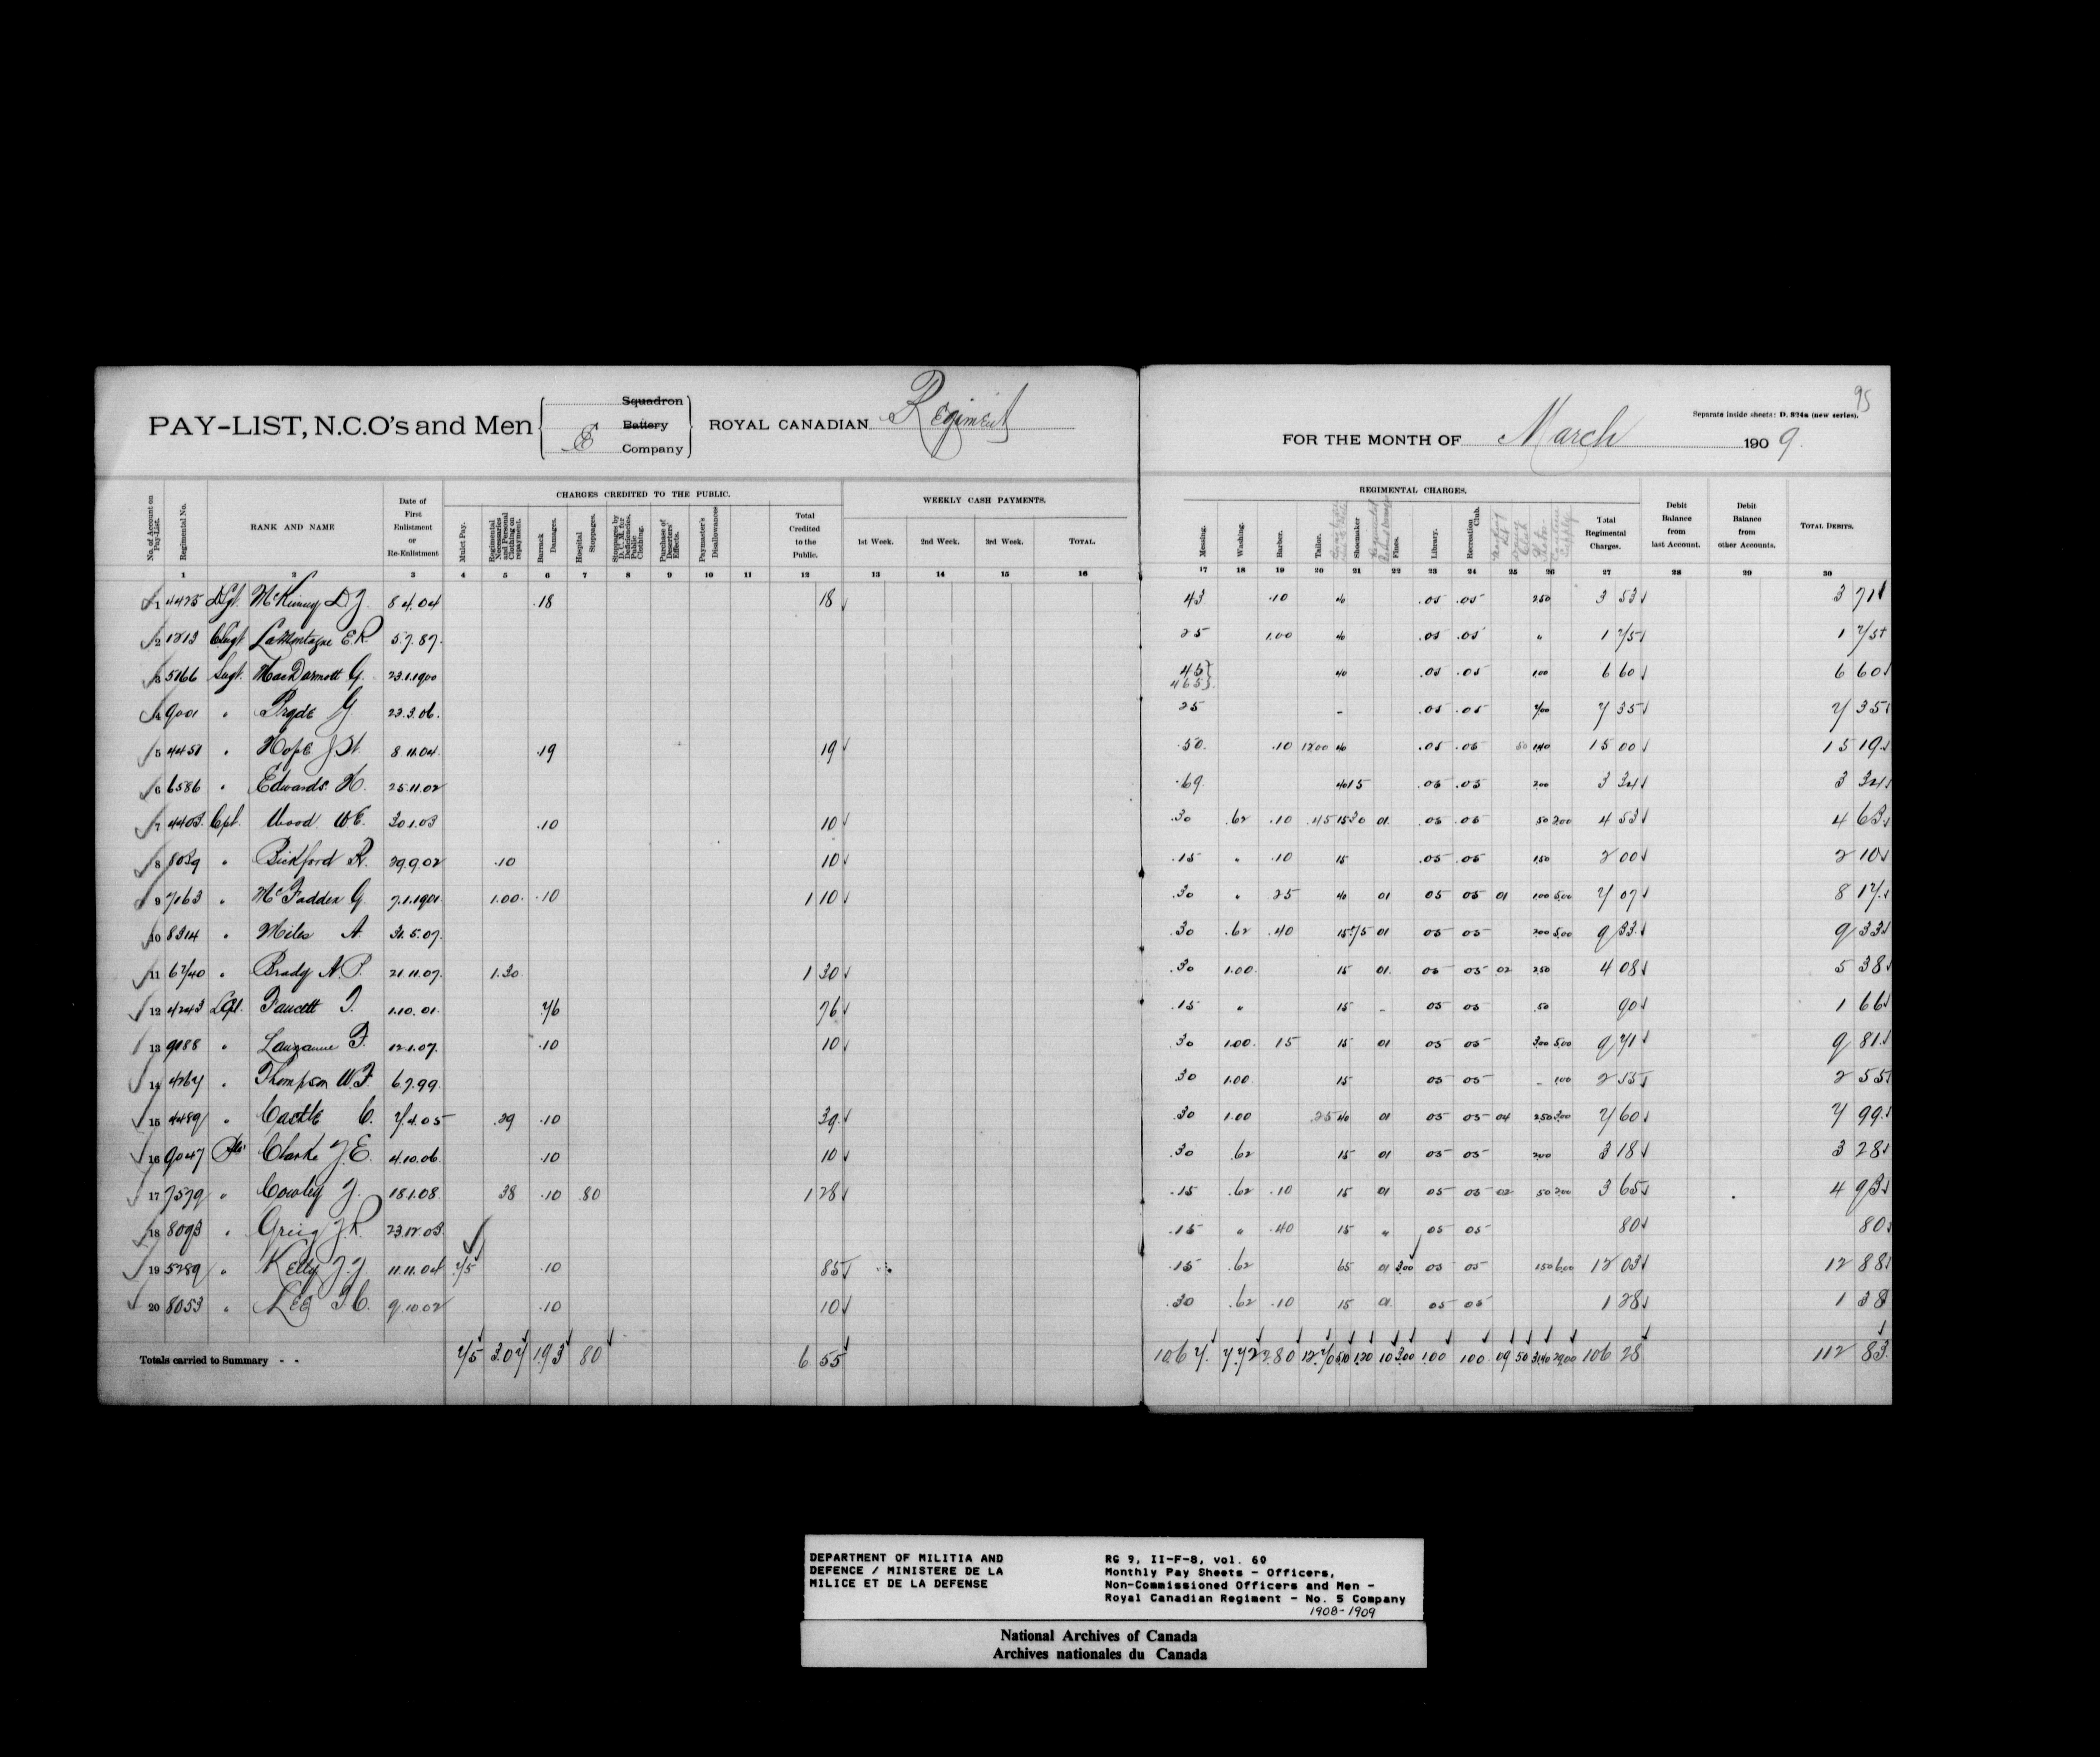 95
Separate inside sheets: D. 824a (new series).
PAY-LIST, N.C.O's and Men
Squadron
Battery
E Company
ROYAL CANADIAN Regiment
FOR THE MONTH OF March 1909.
CHARGES CREDITED TO THE PUBLIC.
WEEKLY CASH PAYMENTS.
REGIMENTAL CHARGES.
No. of Account on Pay-List.
Regimental No.
RANK AND NAME
Date of First Enlistment or Re-Enlistment
Mulct Pay.
Regimental Necessaries and Personal Clothing on repayment.
Barrack Damages.
Hospital Stoppages.
Stoppages by D.A.Q.M. for Deficiencies, Public Clothing.
Purchase of Deserters' Effects.
Paymaster's Disallowances
Total Credited to the Public.
1st Week.
2nd Week.
3rd Week.
TOTAL.
Messing.
Washing.
Barber.
Tailor.
Shoemaker
Fines.
Library.
Recreation Club.
Total Regimental Charges.
Debit Balance from last Account.
Debit Balance from other Accounts.
TOTAL DEBITS.
1 2 3 4 5 6 7 8 9 10 11 12 13 14 15 16 17 18 19 20 21 22 23 24 25 26 27 28 29 30
1 4425 McKinney D J. 8 4.04 .18 18 43 .10 .05 .05 250 3 53 3 71
2 1213 LaMontagne E.R. 5.7.87. 25 1.00 40 .05 .05 " 1 75 1 75
3 5166 Sergt. MacDermott G. 23.1.1900 45 465 40 .05 .05 100 6 60 6 60
4 9001 " Pryde G. 23.3.06. 25 - .05 .05 700 7 35 7 35
5 4451 " Hope J St. 8 11.04. .19 19 .50. .10 1200 40 .05 .05 50 140 15 00 15 19
6 6586 " Edwards H. 25.11.02 .69. 40 15 .05 .05 200 3 34 3 34
7 4403. Cpl. Wood W.E. 30 1.03 .10 10 .30 .62 .10 .45 15 30 01. .05 .05 50 200 4 53 4 63
8 8039 " Bickford R. 29.9.02 .10 10 .15 " .10 15 .05 .05 150 2 00 2 10
9 7163 " McFadden G. 7.1.1901 1.00. .10 1 10 .30 " 25 40 01 05 05 01 100 500 7 07 8 17
10 8314 " Miles A. 31.5.07. .30 .62 .40 15 75 01 05 05 200 500 9 33 9 33
11 6740 " Brady A.P. 21 11.07. 1.30. 1 30 .30 1.00. 15 01. 05 05 02 250 4 08 5 38
12 4243 LCpl. Faucett T. 1.10.01. .76 76 .15 " 15 - 05 05 .50 90 1 66
13 9188 " Lauzanne F. 12.1.07. .10 10 30 1.00. 15 15 01 05 05 300 500 9 71 9 81
14 4267 " Thompson W.F. 6.7.99. 30 1.00. 15 05 05 - 100 2 55 2 55
15 4489 " Castle C. 7.4.05 .29 .10 39 .30 1.00 .25 40 01 05 05 04 250 300 7 60 7 99
16 9047 Pte. Clarke J.E. 4.10.06. .10 10 .30 .62 15 01 05 05 200 3 18 3 28
17 7579 " Cowley J. 18.1.08. 38 .10 .80 1 28 .15 .62 .10 15 01 05 05 02 50 200 3 65 4 93
18 8093 " Greig J.R. 23.12.03 .15 " .40 15 " 05 05 80 80
19 5289 " Kelly J.J. 11.11.04 .75 .10 85 .15 .62 65 01 300 05 05 150 600 12 03 12 88
20 8053 " Lee F.C. 9.10.02 .10 10 .30 .62 .10 15 01. 05 05 1 28 1 38
Totals carried to Summary - - 75 3.07 1.93 80 6 55 10.67. 7.72 2.80 12.70 510 120 10 300 1.00 1.00 09 50 3140 2900 106 28 112 83
DEPARTMENT OF MILITIA AND
DEFENCE / MINISTERE DE LA
MILICE ET DE LA DEFENSE
RG 9, II-F-8, vol. 60
Monthly Pay Sheets - Officers,
Non-Commissioned Officers and Men -
Royal Canadian Regiment - No. 5 Company
1908-1909
National Archives of Canada
Archives nationales du Canada